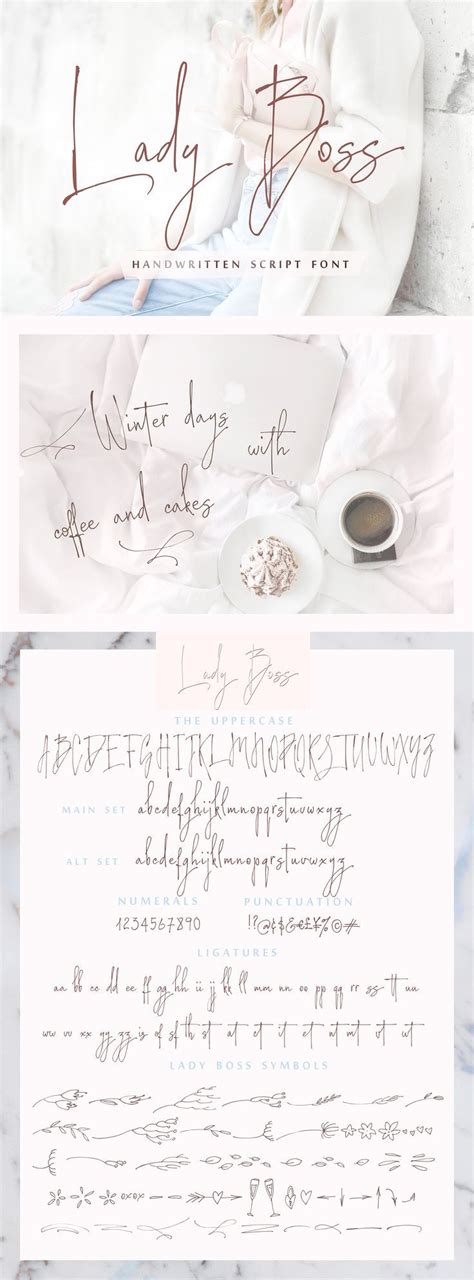 Lady Boss
HANDWRITTEN SCRIPT FONT
Winter days
with
coffee and cakes
Lady Boss
THE UPPERCASE
ABCDEFGHIJKLMNOPQRSTUVWXYZ
MAIN SET abcdefghijklmnopqrstuvwxyz
ALT SET abcdefghijklmnopqrstuvwxyz
NUMERALS PUNCTUATION
1234567890 !?@¢$&£¥%©#
LIGATURES
aa bb cc dd ee ff gg hh ii jj kk ll mm nn oo pp qq rr ss tt uu
vv xx yy zz is of sf th st at ct it et nt mt ot ut
LADY BOSS SYMBOLS